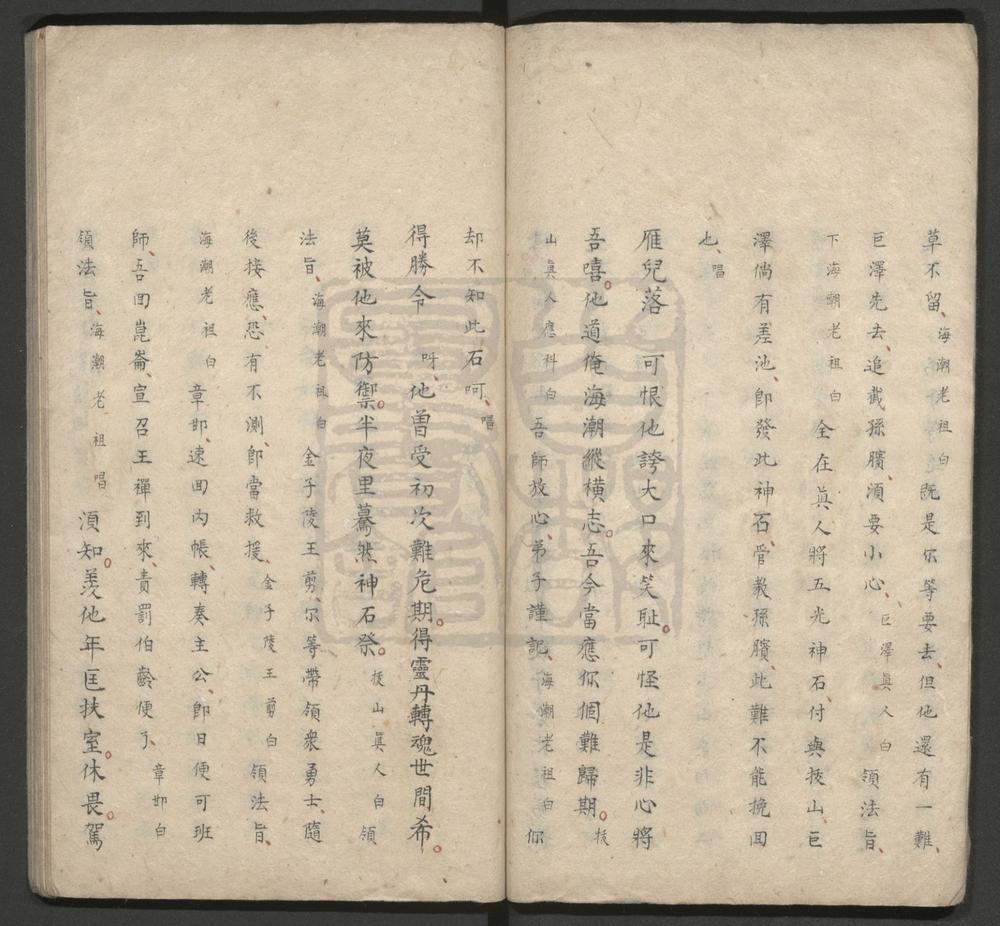 草不留、海潮老祖白既是尔等要去、但他還有一難、
巨澤先去、追截孫臏、須要小心、巨澤眞人白領法旨、
下海潮老祖白全在眞人將五光神石、付與拔山、巨
澤倘有差池、卽發此神石、管敎孫臏、此難不能挽回
也、唱
雁兒落 可恨他誇大口來笑耻。可怪他是非心將
吾嘻。他道俺海潮縱橫志。吾今當應你個難歸期。拔
山眞人應科白吾師放心、弟子謹記、海潮老祖白你
却不知此石呵、唱
得勝令 呀、他曾受初次難危期。得靈丹轉魂世間希。
莫被他來防禦。半夜里驀然神石祭。拔山眞人白領
法旨、海潮老祖白金子陵王剪、尔等帶領衆勇士、隨
後接應、恐有不測、卽當救援、金子陵王剪白領法旨、
海潮老祖白章邯、速回內帳、轉奏主公、卽日便可班
師、吾回崑崙、宣召王禪到來、責罰伯齡便了、章邯白
領法旨、海潮老祖唱須知。羡他年匡扶室。休畏駕